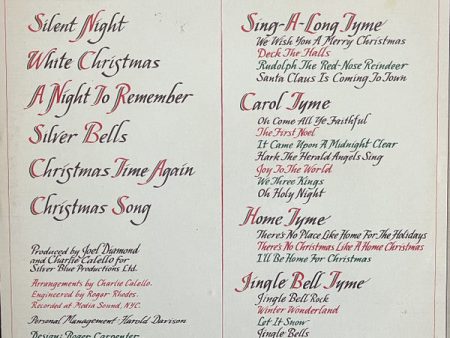 Silent Night
White Christmas
A Night To Remember
Silver Bells
Christmas Time Again
Christmas Song
Produced by Joel Diamond
and Charlie Calello for
Silver Blue Productions Ltd.
Arrangements by Charlie Calello.
Engineered by Roger Rhodes.
Recorded at Media Sound, NYC.
Personal Management: Harold Davison
Design: Roger Carpenter
Sing-A-Long Tyme
We Wish You A Merry Christmas
Deck The Halls
Rudolph The Red-Nose Reindeer
Santa Claus Is Coming To Town
Carol Tyme
Oh Come All Ye Faithful
The First Noel
It Came Upon A Midnight Clear
Hark The Herald Angels Sing
Joy To The World
We Three Kings
Oh Holy Night
Home Tyme
There's No Place Like Home For The Holidays
There's No Christmas Like A Home Christmas
I'll Be Home For Christmas
Jingle Bell Tyme
Jingle Bell Rock
Winter Wonderland
Let It Snow
Jingle Bells